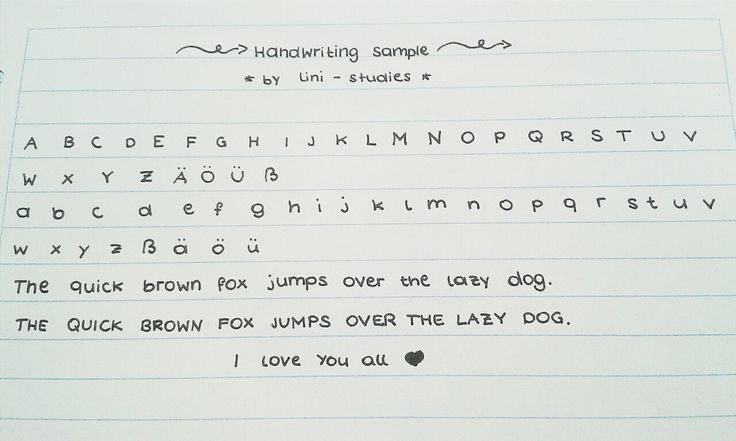 Handwriting sample
* by uni - studies *
A B C D E F G H I J K L M N O P Q R S T U V
W X Y Z Ä Ö Ü ß
a b c d e f g h i j k l m n o p q r s t u v
w x y z ß ä ö ü
The quick brown fox jumps over the lazy dog.
THE QUICK BROWN FOX JUMPS OVER THE LAZY DOG.
I love you all ♥